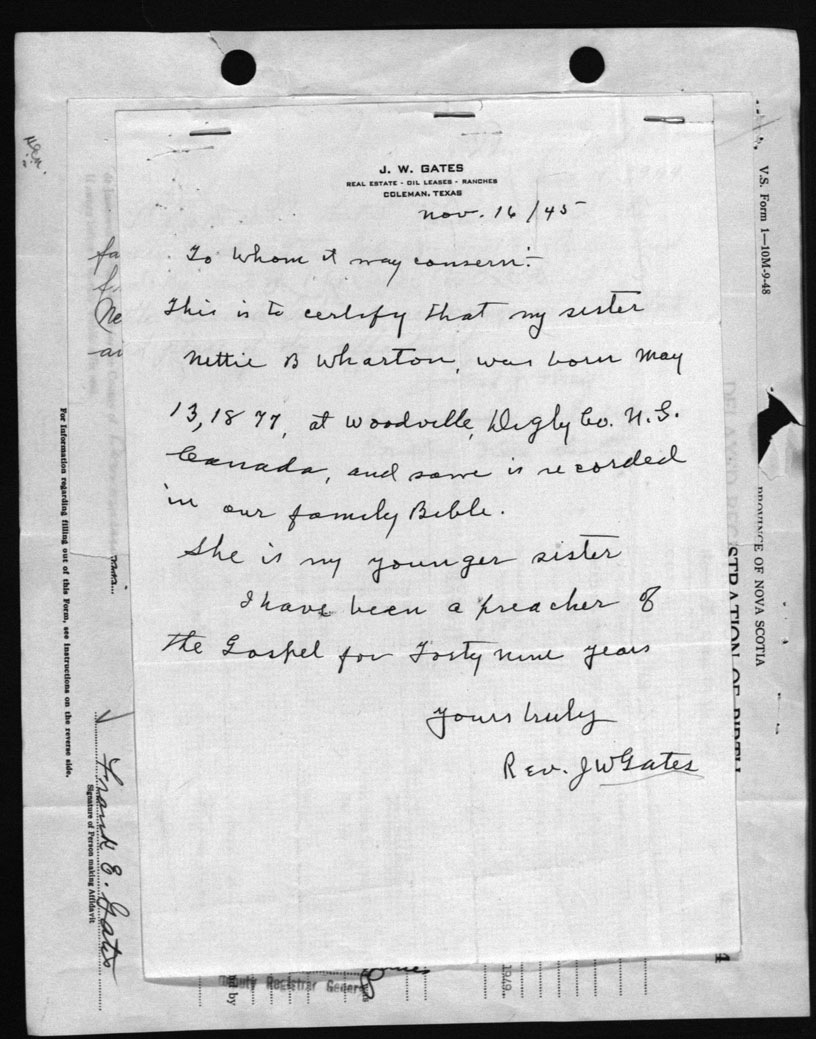 J. W. GATES
REAL ESTATE - OIL LEASES - RANCHES
COLEMAN, TEXAS
Nov. 16/45
To Whom it may consern:-
This is to certify that my sister
Nettie B Wharton, was born May
13, 1877, at Woodville, Digby Co. N.S.
Canada, and same is recorded
in our family Bible.
She is my younger sister
I have been a preacher of
the Gospel for Forty nine years
yours truly
Rev. J W Gates
V.S. Form 1—10M-9-48
PROVINCE OF NOVA SCOTIA
STRATION OF BIRTH
For Information regarding filling out of this Form, see instructions on the reverse side.
Frank E. Gates
Signature of Person making Affidavit
Deputy Registrar General
by
19